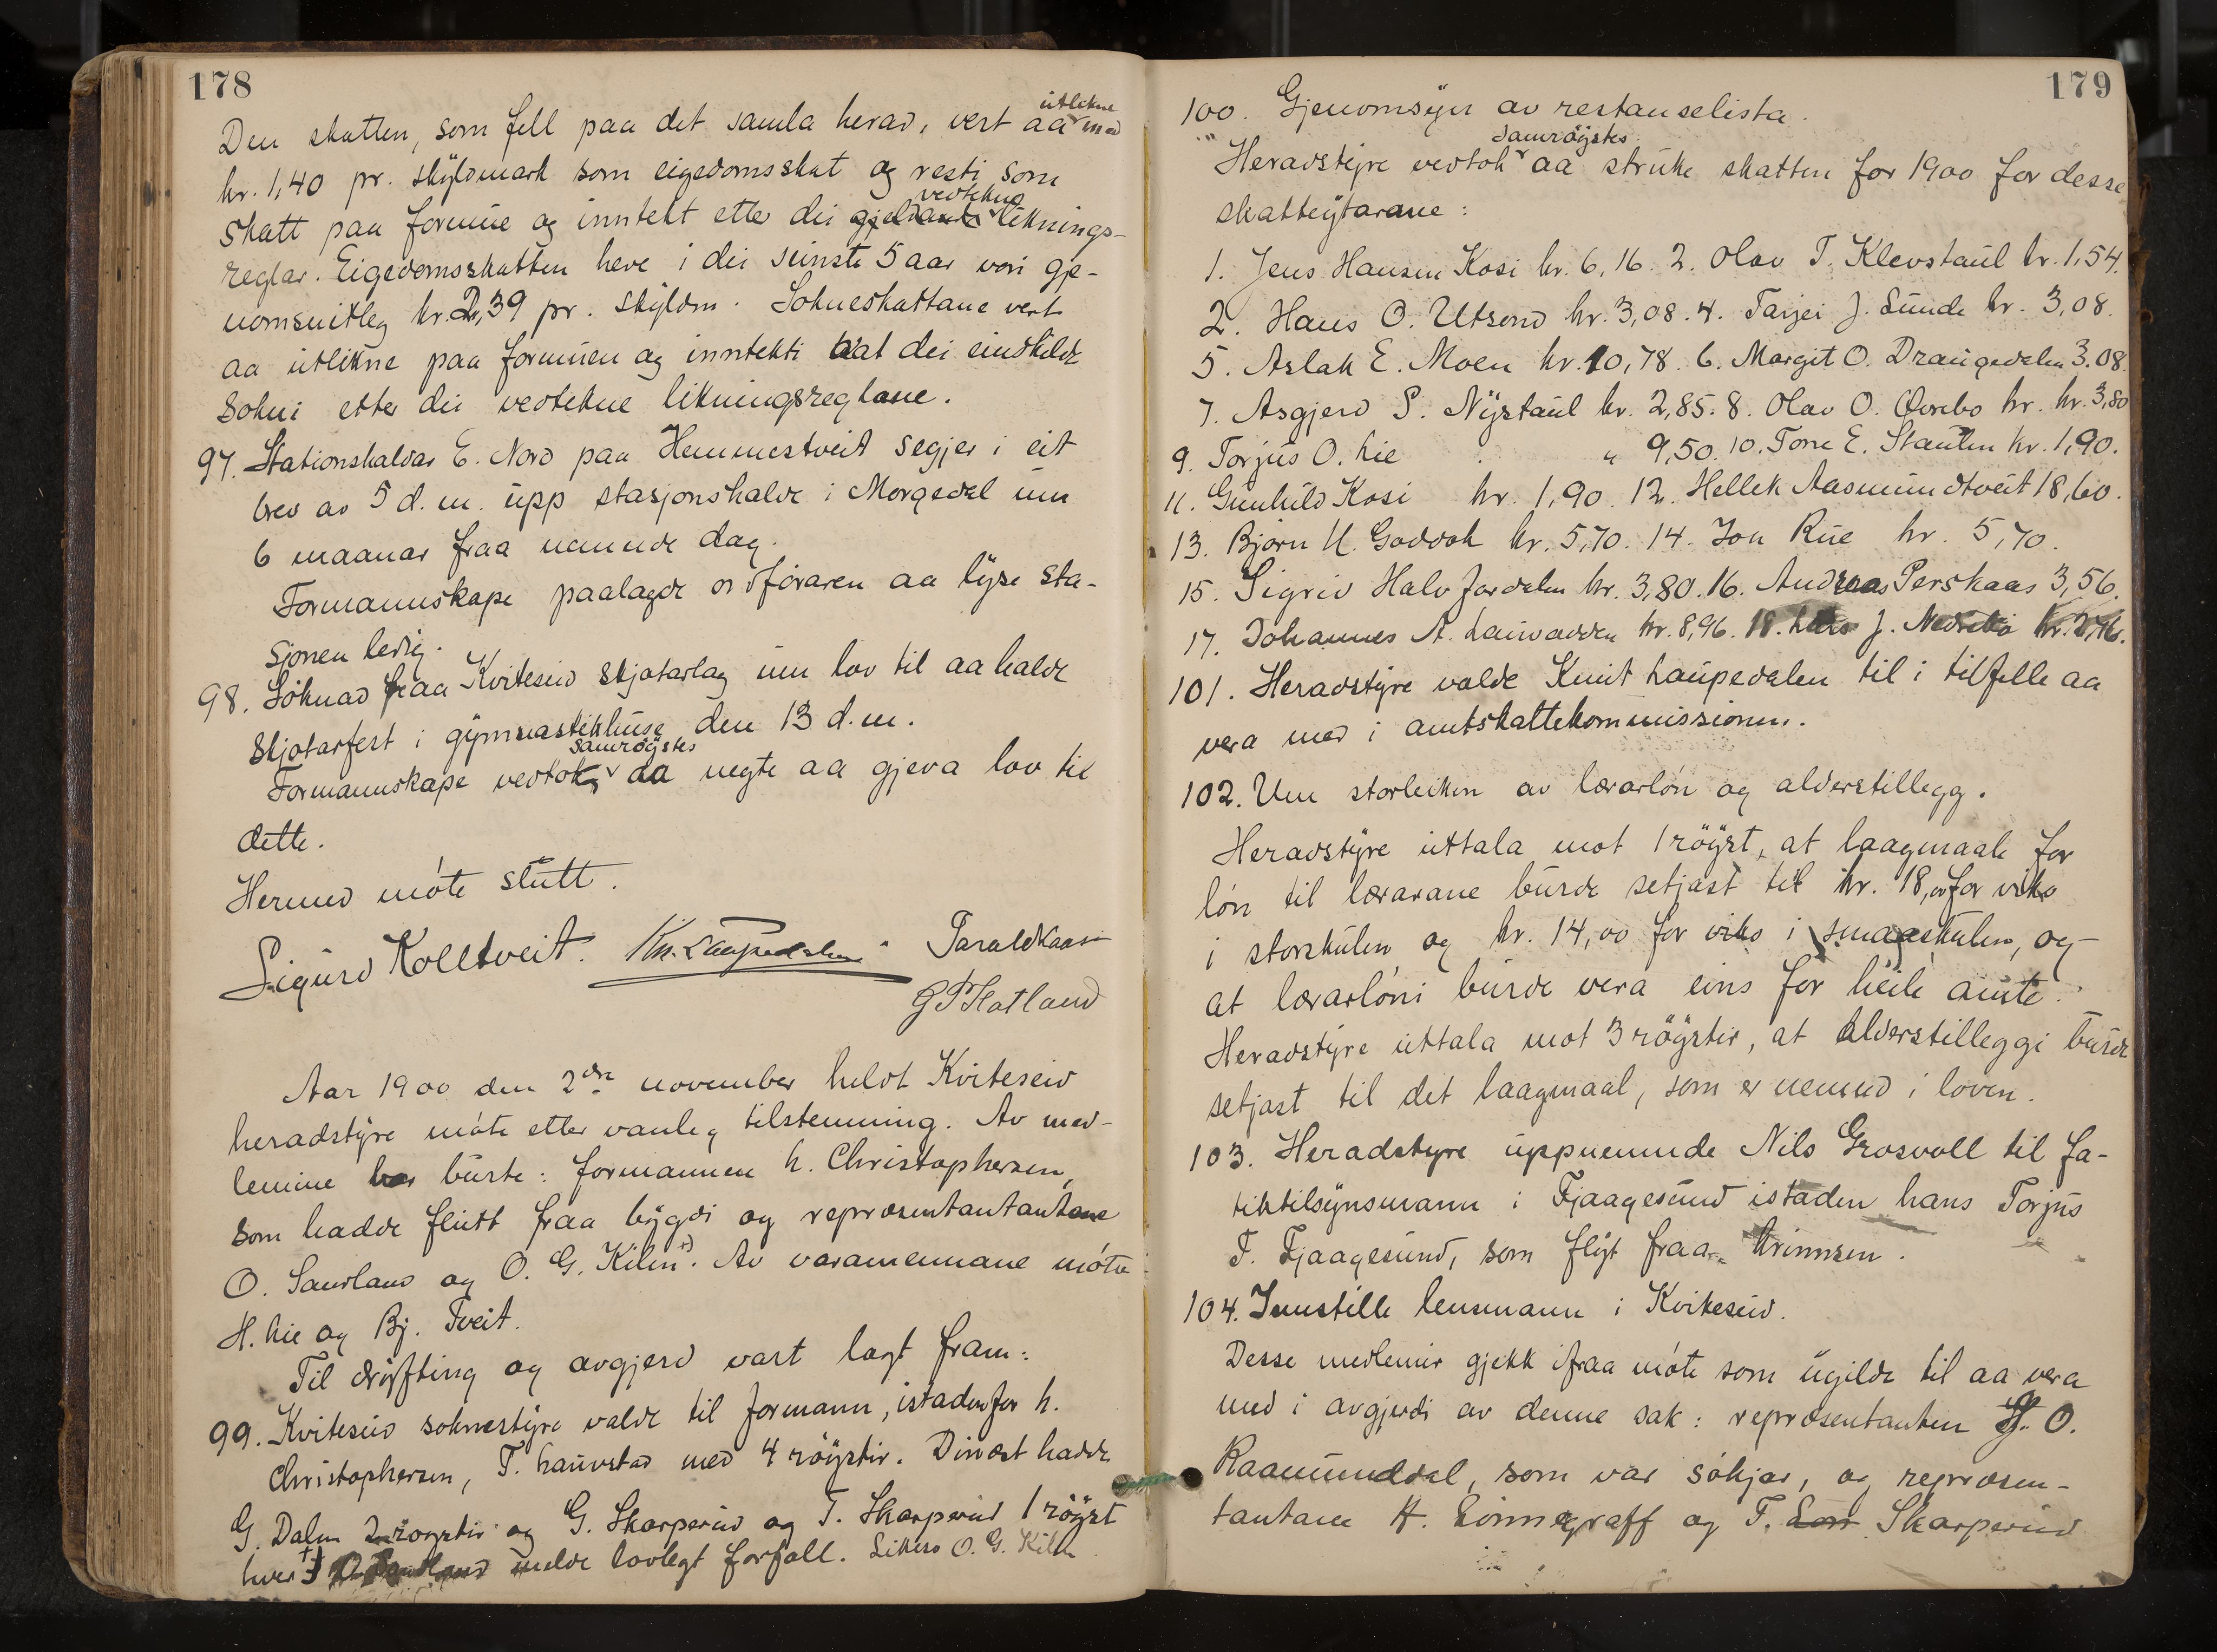 178
Den skatten, som fell paa det samla herad, vert aa utlikne med
kr. 1,40 pr. skyldmark som eigedomsskat og resti som
skatt paa formue og inntekt etter dei gjeldande vedtekne liknings-
reglar. Eigedomsskatten heve i dei seinste 5 aar vori gje-
nomsnitleg kr. 2,39 pr. skyldm. Sokneskattane vert
aa utlikne paa formuen og inntekti at dei einskilde
Sokni etter dei vedtekne likningsreglane.
97. Stationshaldar E. Nord paa Hemmestveit segjer i eit
brev av 5 d. m. upp stasjonshalde i Morgedal um
6 maanar fraa nemnde dag.
Formannskape paalagde ordføraren aa lyse sta-
sjonen ledig.
98. Søknad fraa Kviteseid Skjotarlag um lov til aa halde
Skjotarfest i gymnastikhuse den 13 d. m.
Formannskape vedtok samrøystes aa negte aa gjeva lov til
dette.
Hermed møte slutt.
Sigurd Kolltveit. Kn. Laupedalen. Taraldkaasa
G T Hatland
Aar 1900 den 2dre november heldt Kviteseid
heradstyre møte etter vanleg tilstemning. Av med-
lemine burte: formannen L. Christophersen,
som hadde flutt fraa bygdi og repræsentantantane
O. Sandland og O. G. Kilen +). Av varamennane møtte
H. Lie og Bj. Tveit.
Til drøfting og avgjerd vart lagt fram:
99. Kviteseid soknestyre valde til formann, istadenfor L.
Christophersen, T. Lauvstad med 4 røystir. Dinæst hadde
G. Dalen 2 røystir og G. Skarperud og T. Skarperud 1 røyst
hver +) O. Sandland melde lovlegt forfall. Likeso O. G. Kilen
179
100. Gjenomsyn av restanselista.
Heradstyre vedtok samrøystes aa struke skatten for 1900 for desse
skatteytarane:
1. Jens Hansen Kosi kr. 6,16. 2. Olav T. Klevstaul kr. 1,54.
2. Hans O. Utsond kr. 3,08. 4. Tarjei J. Sunde kr. 3,08.
5. Aslak E. Moen kr. 10,78. 6. Margit O. Draugedalen 3.08.
7. Asgjerd S. Nystaul kr. 2,85. 8. Olav O. Øvrebø kr. kr. 3,80
9. Torjus O. Lie " 9,50. 10. Tone E. Staulen kr. 1,90.
11. Gunhild Kosi kr. 1,90. 12. Hellek Aasmundtveit 18,60.
13. Bjørn H. Godvok kr. 5,70. 14. Jon Rue kr. 5,70.
15. Sigrid Halvfardalen kr. 3,80. 16. Andreas Perskaas 3,56.
17. Johannes A. kr. 8,96. 18. Lars J. Nedrebø kr. 2,76.
101. Heradstyre valde Knut Laupedalen til i tilfelle aa
vera med i amtskattekommissionen.
102. Um storleiken av lærarløn og alderstillegg.
Heradstyre uttala mot 1 røyst, at laagmaale for
løn til lærarane burde setjast til kr. 18,00 for vika
i storskulen og kr. 14,00 for vika i smaaskulen, og
at lærarløni burde vera eins for heile amte.
Heradstyre uttala mot 3 røystir, at alderstilleggi burde
setjast til det laagmaal, som er nemnd i loven.
103. Heradstyre uppnemnde Nils Grosvoll til fa-
tiktilsynsmann i Fjaagesund istaden hans Torjus
T. Fjaagesund, som flyt fraa krinnsen.
104. Innstille lensmann i Kviteseid.
Desse medlemir gjekk ifraa møte som ugilde til aa vera
med i avgjerdi av denne sak: repræsentanten G. O.
Raamunddal, som var søkjar, og repræsen-
tantane H. Linnegraff og T. Skarperud